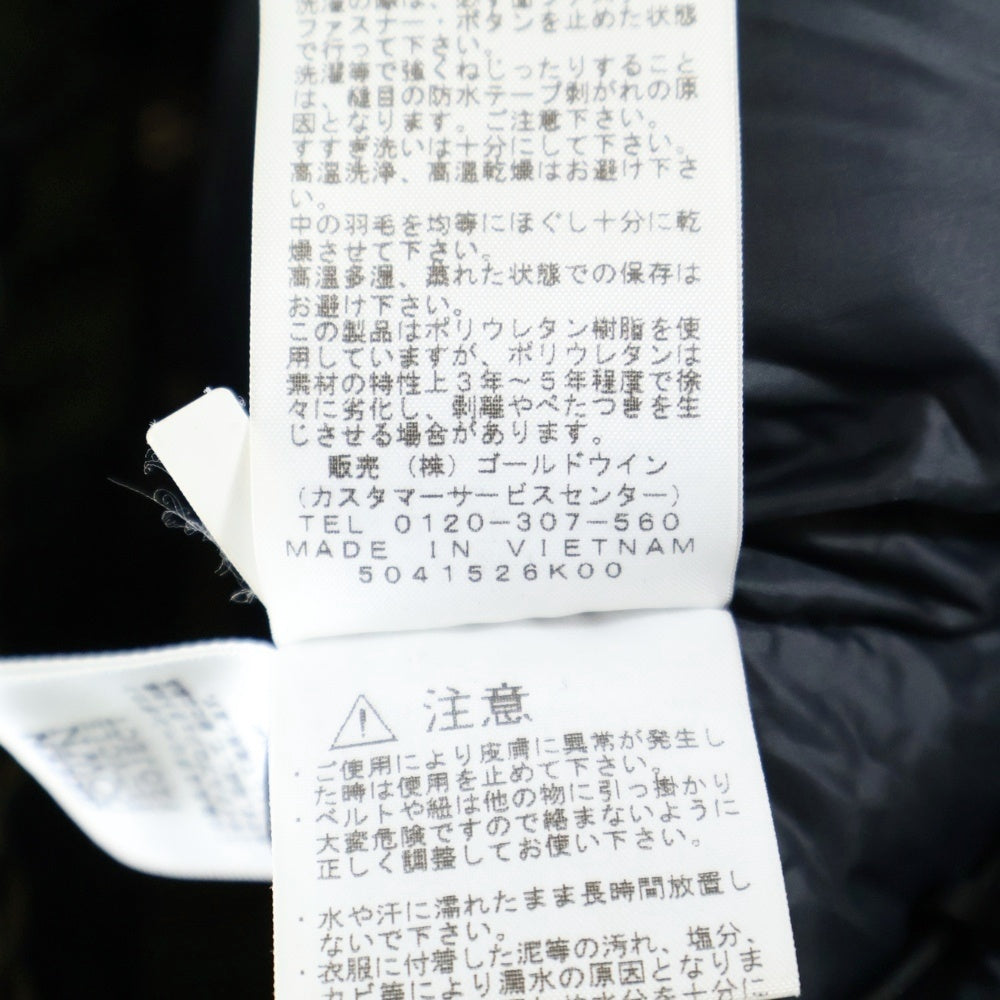 ファスナー・ボタンを止めた状態
で行って下さい。
洗濯等で強くねじったりすること
は、縫目の防水テープ剥がれの原
因となります。ご注意下さい。
すすぎ洗いは十分にして下さい。
高温洗浄、高温乾燥はお避け下さ
い。
中の羽毛を均等にほぐし十分に乾
燥させて下さい。
高温多湿、蒸れた状態での保存は
お避け下さい。
この製品はポリウレタン樹脂を使
用していますが、ポリウレタンは
素材の特性上3年～5年程度で徐
々に劣化し、剥離やべたつきを生
じさせる場合があります。
販売 (株) ゴールドウイン
(カスタマーサービスセンター)
TEL 0120-307-560
MADE IN VIETNAM
5041526K00
注意
・ご使用により皮膚に異常が発生し
た時は使用を止めて下さい。
・ベルトや紐は他の物に引っ掛かり
大変危険ですので絡まないように
正しく調整してお使い下さい。
・水や汗に濡れたまま長時間放置し
ないで下さい。
・衣服に付着した泥等の汚れ、塩分、
カビ等により漏水の原因となりま